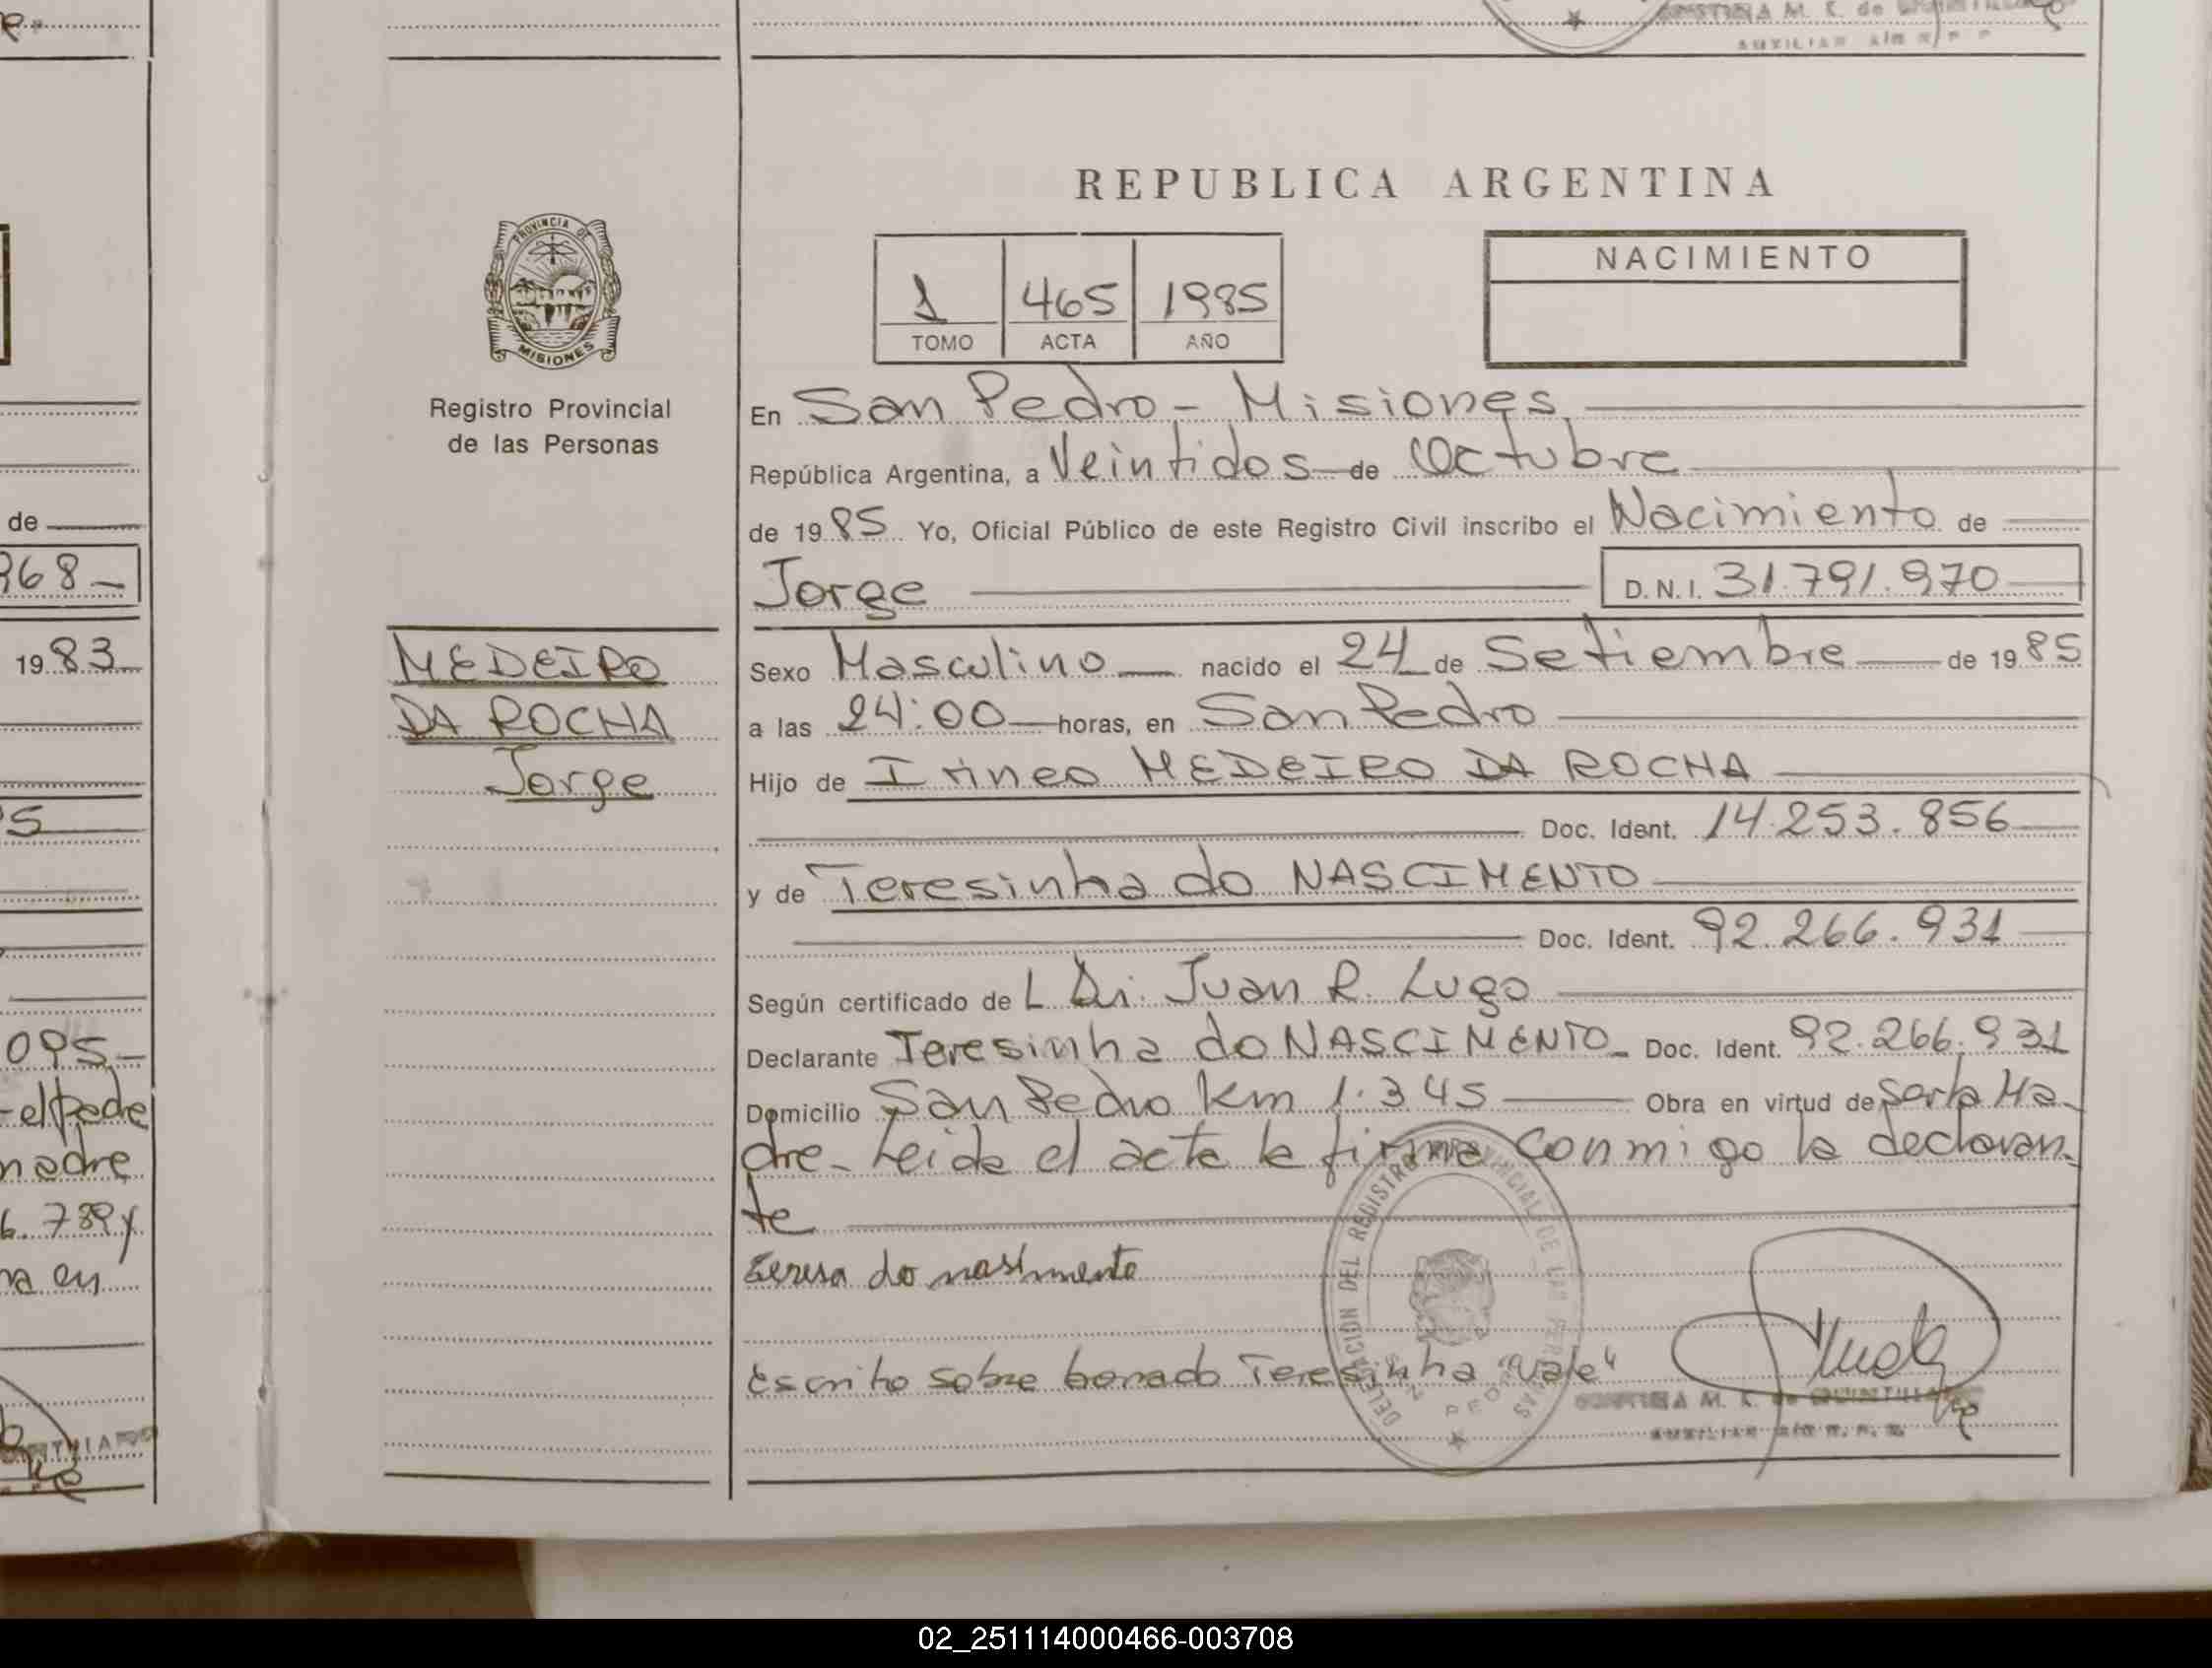 REPUBLICA ARGENTINA
PROVINCIA DE
MISIONES
Registro Provincial
de las Personas
1 465 1985
TOMO ACTA AÑO
NACIMIENTO
En San Pedro - Misiones
República Argentina, a Veintidos de Octubre
de 1985 Yo, Oficial Público de este Registro Civil inscribo el Nacimiento de
Jorge D.N.I. 31.791.970
MEDEIRO
DA ROCHA
Jorge
Sexo Masculino nacido el 24 de Setiembre de 1985
a las 24:00 horas, en San Pedro
Hijo de Irineo MEDEIRO DA ROCHA
Doc. Ident. 14.253.856
y de Teresinha do NASCIMENTO
Doc. Ident. 92.266.931
Según certificado de L Dr. Juan R. Lugo
Declarante Teresinha do NASCIMENTO Doc. Ident. 92.266.931
Domicilio San Pedro Km 1.345 Obra en virtud de ser la Ma-
dre - Leida el acta la firma conmigo la declaran-
te
Teresa do nasimento
Escrito sobre borrado Teresinha "Vale"
DELEGACION DEL REGISTRO PROVINCIAL DE LAS PERSONAS
SAN PEDRO
de
968-
1983
5
095-
el padre
madre
6.789 y
na en
02_251114000466-003708